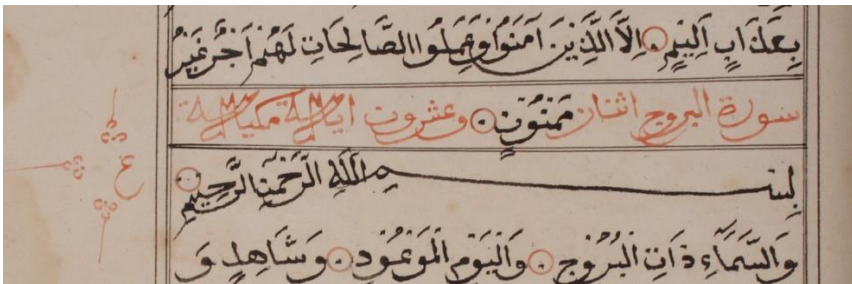 بِعَذَابٍ اَلِيْمٍ اِلَّا الَّذِيْنَ اٰمَنُوْا وَعَمِلُوا الصَّالِحَاتِ لَهُمْ اَجْرٌ غَيْرُ
سورة البروج اثنتان مَمْنُوْنٍ وعشرون اية مكية
بِسْمِ اللّٰهِ الرَّحْمٰنِ الرَّحِيْمِ
وَالسَّمَاءِ ذَاتِ الْبُرُوْجِ وَالْيَوْمِ الْمَوْعُوْدِ وَشَاهِدٍ وَ
ع